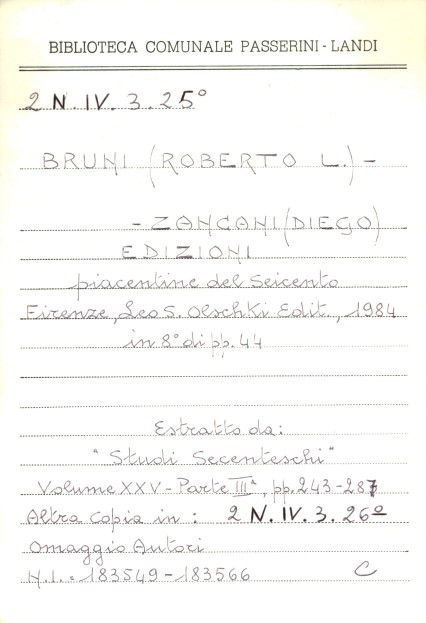 BIBLIOTECA COMUNALE PASSERINI - LANDI
2 N. IV. 3. 25°
BRUNI (ROBERTO L.) -
- ZANCANI (DIEGO)
EDIZIONI
piacentine del Seicento
Firenze, Leo S. Olschki Edit., 1984
in 8° di pp. 44
Estratto da:
"Studi Secenteschi"
Volume XXV - Parte IIIª, pp. 243-287
Altra copia in: 2 N. IV. 3. 26º
Omaggio Autori
N.I. = 183549 - 183566 C